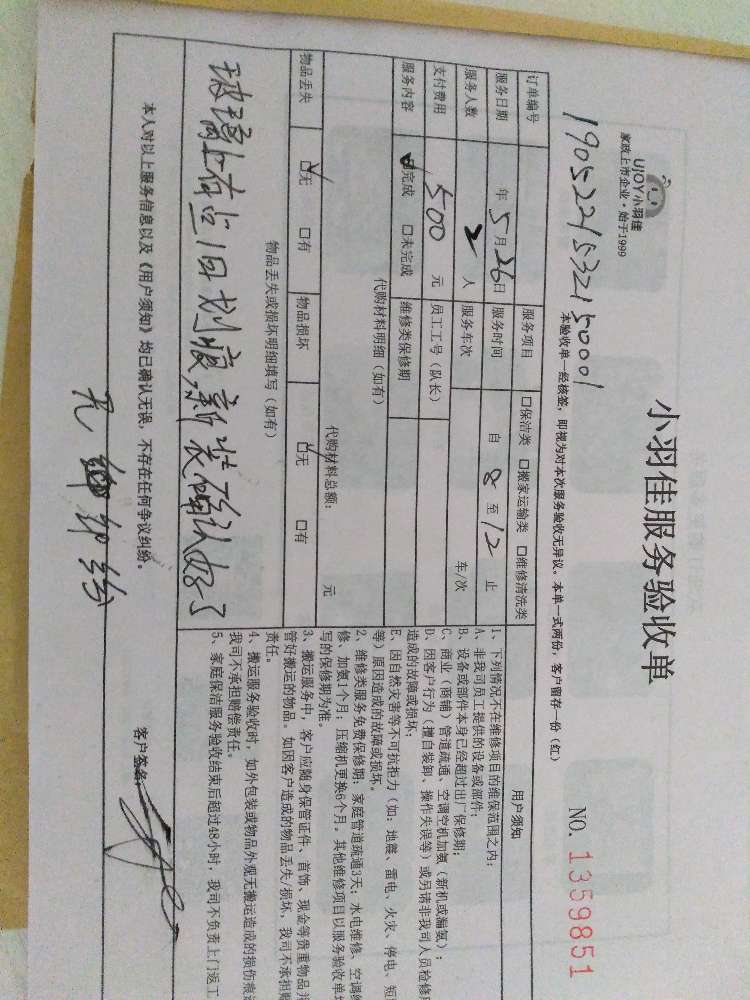 UJOY小羽佳
家政上市企业·始于1999
小羽佳服务验收单
NO. 1359851
190522153215001
本验收单一经核签，即视为对本次服务验收无异议。本单一式两份，客户留存一份（红）
订单编号 服务项目 口保洁类 口搬家运输类 口维修清洗类
服务日期 年 5 月 26 日 服务时间 自 8 至 12 止
服务人数 2 人 服务车次 车/次
支付费用 500 元 员工工号（队长）
服务内容 口完成 口未完成 维修类保修期
代购材料明细（如有）
代购材料总额： 元
物品丢失 口无 口有 物品损坏 口无 口有
物品丢失或损坏明细填写（如有）
玻璃 上有 旧划痕 确认好了
本人对以上服务信息以及《用户须知》均已确认无误，不存在任何争议纠纷。
无 纠纷
用户须知
1、下列情况不在维修项目的维保范围之内：
A、非我司员工提供的设备或部件；
B、设备或部件本身已经超过出厂保修期；
C、商业（商铺）管道疏通、空调空机加氨（新机或漏氨）；
D、因客户行为（擅自装卸、操作失误等）或另请非我司人员检修
造成的故障或损坏；
E、因自然灾害等不可抗拒力（如：地震、雷电、火灾、停电、短
等）原因造成的故障或损坏。
2、维修类服务免费保修期：家庭管道疏通3天；水电维修、空调
修、加氨1个月；压缩机更换6个月。其他维修项目以服务验收单
写的保修期为准。
3、搬运服务中，客户应随身保管证件、首饰、现金等贵重物品并
管好搬运的物品。如因客户造成的物品丢失/损坏，我司不承担
责任。
4、搬运服务验收时，如外包装或物品外观无搬运造成的损伤痕
我司不承担赔偿责任。
5、家庭保洁服务验收结束后超过48小时，我司不负责上门返工
客户签名：